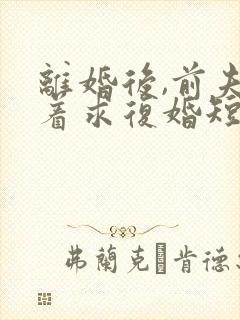 離婚後,前夫
着求復婚短
弗蘭克·肯德